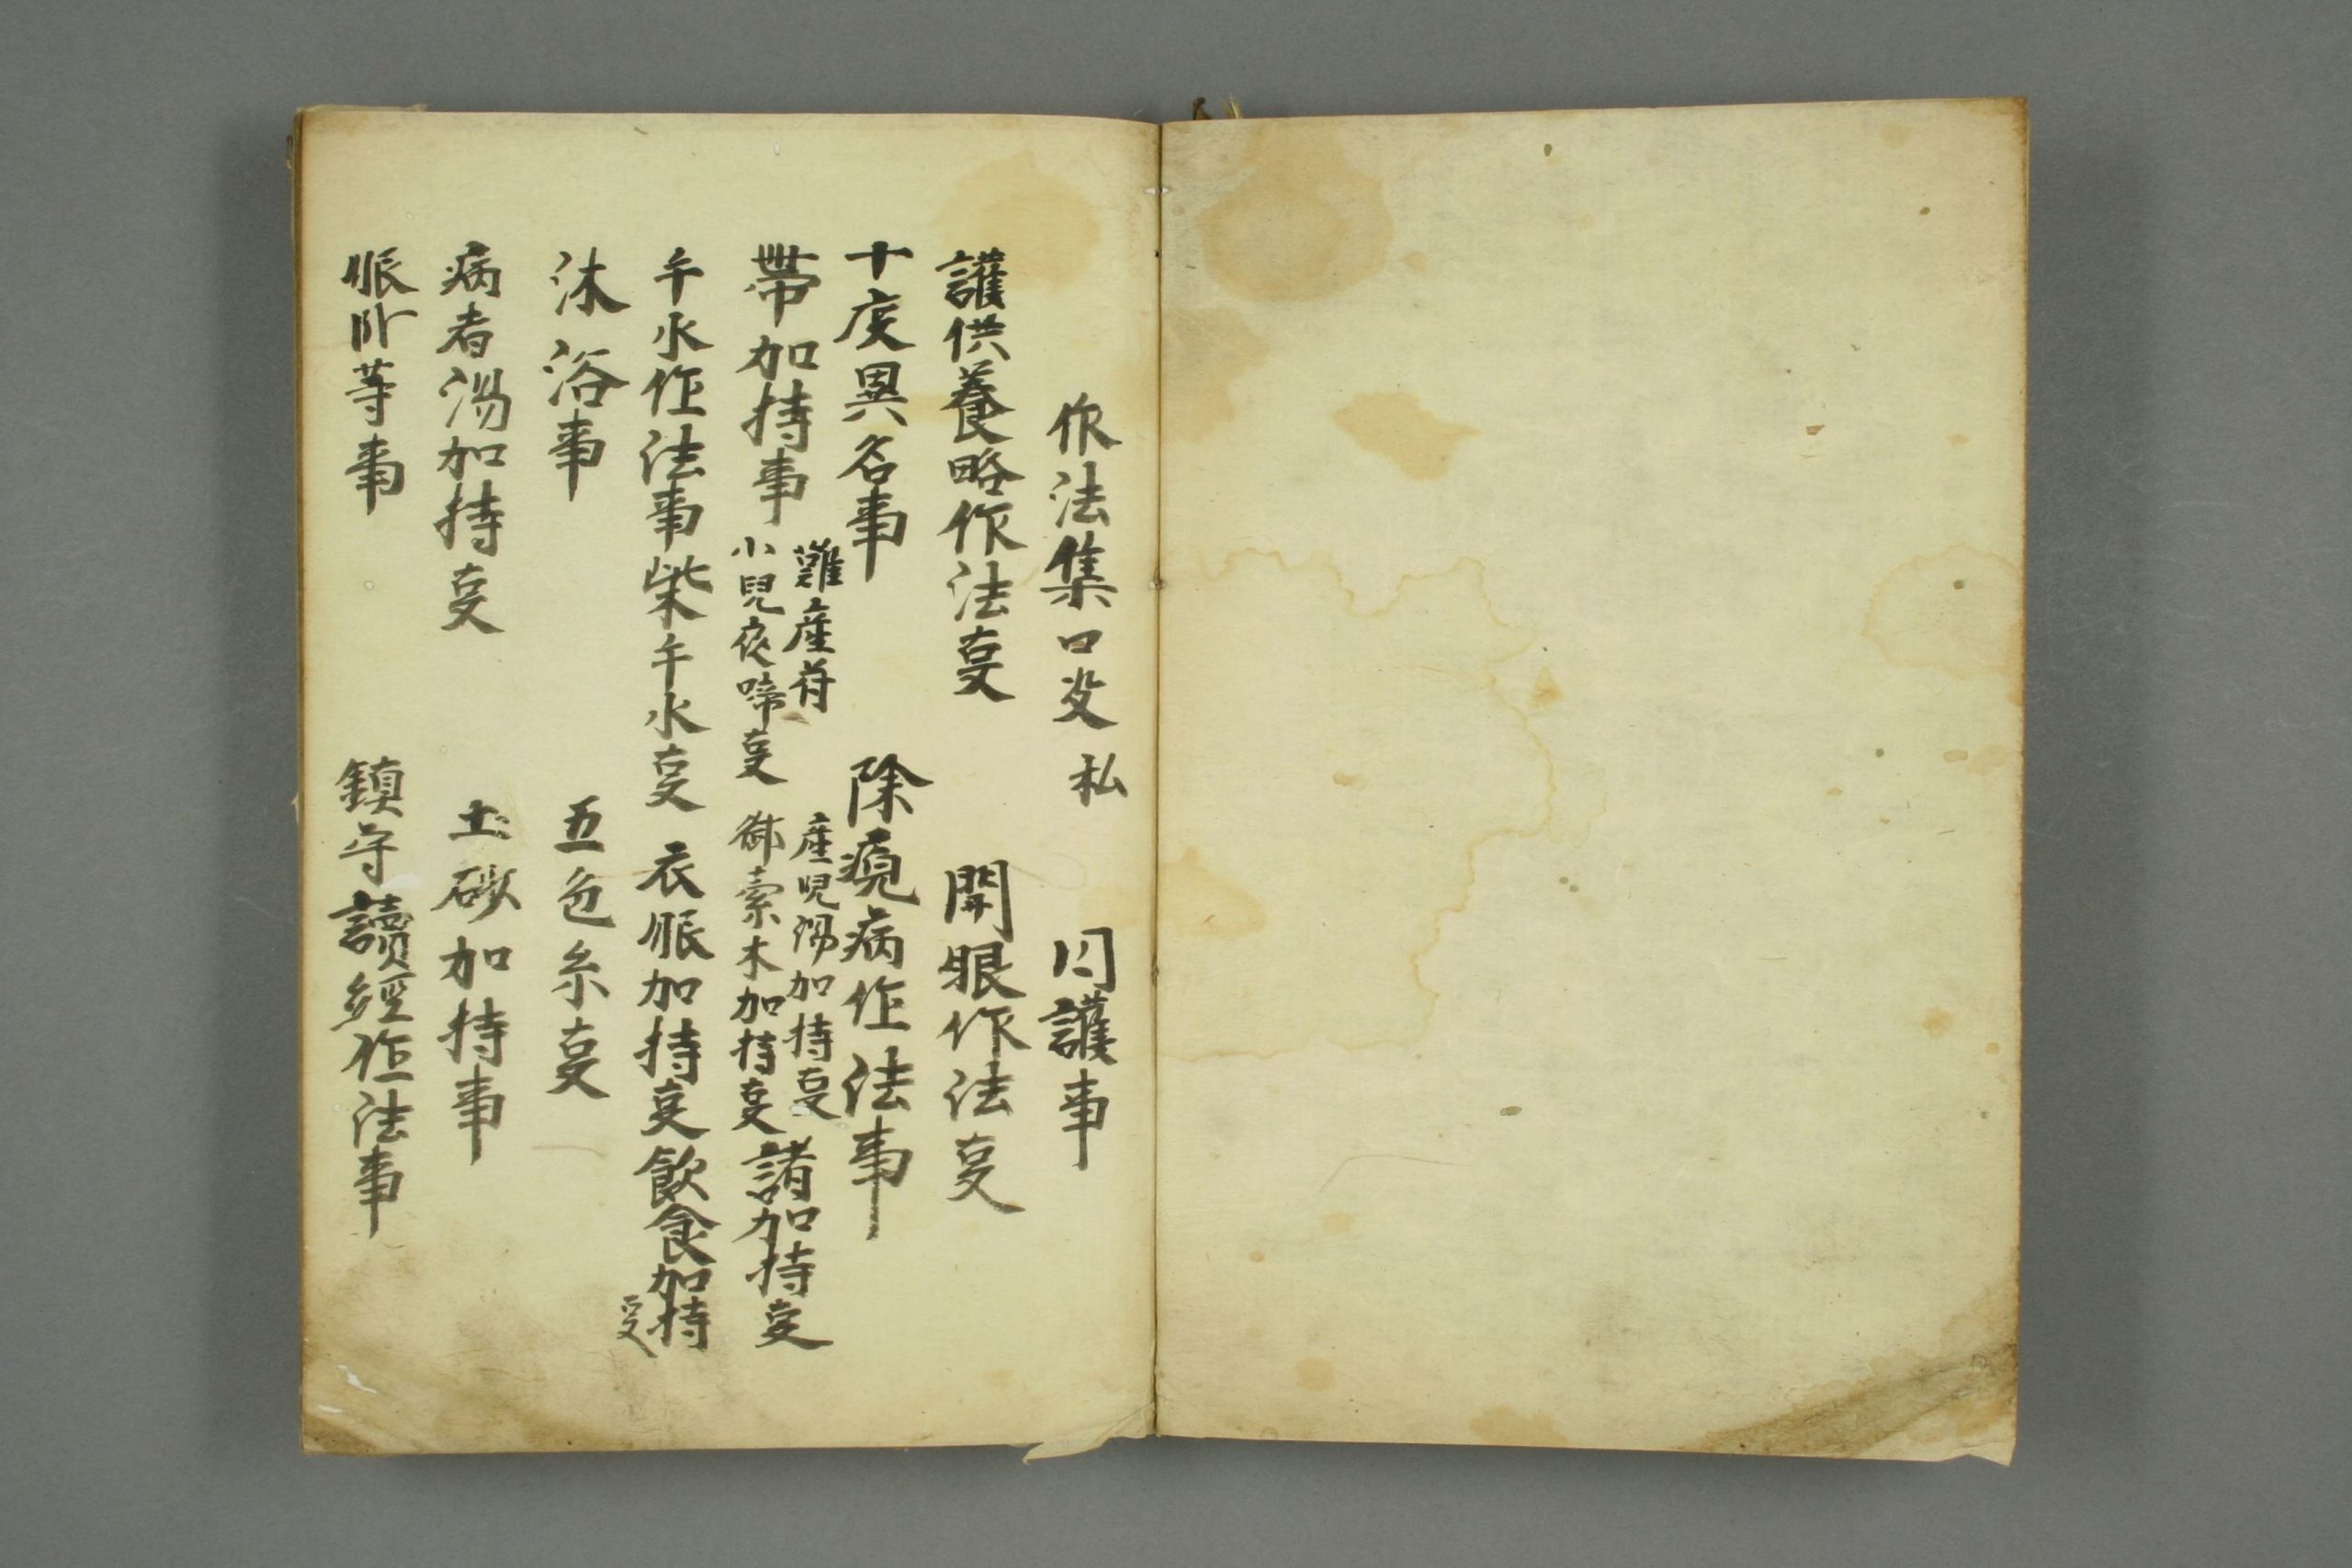 作法集口决 私 円護事
護供養略作法㕝 開眼作法㕝
十度異名事 除病作法事
帶加持事 難産符 小兒夜啼㕝 産児湯加持㕝 御索木加持㕝 諸加持㕝
午水作法事柴午水㕝 衣服加持㕝飲食加持㕝
沐浴事 五色糸㕝
病者湯加持㕝 土砂加持事
服卧等事 鎮守讀經作法事